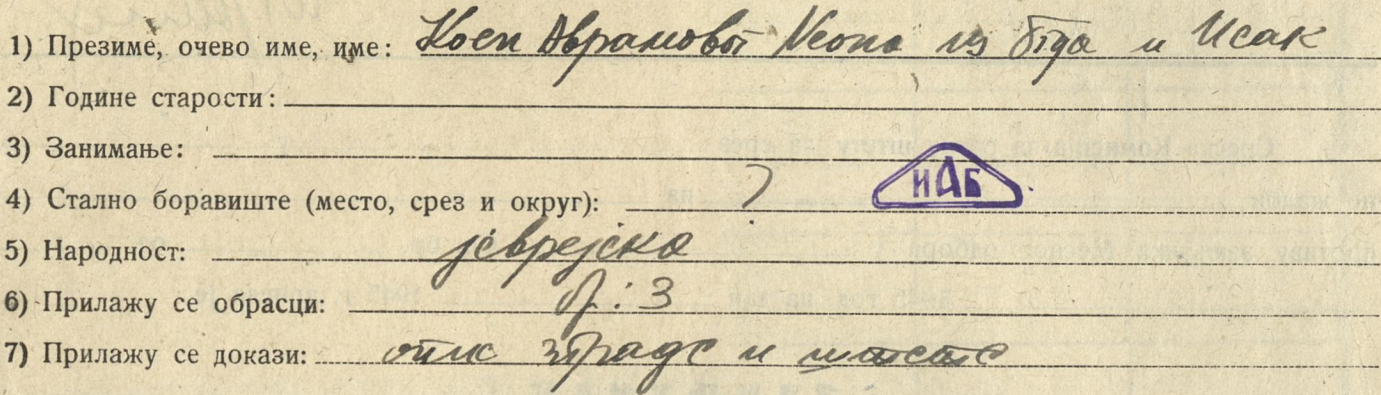 1) Презиме, очево име, име: Коен Аврамовы Неона из бгда и Исак
2) Године старости:
3) Занимање:
4) Стално боравиште (место, срез и округ): ?
ИАБ
5) Народност: јеврејска
6) Прилажу се обрасци: бр: 3
7) Прилажу се докази: опис зграде и штете